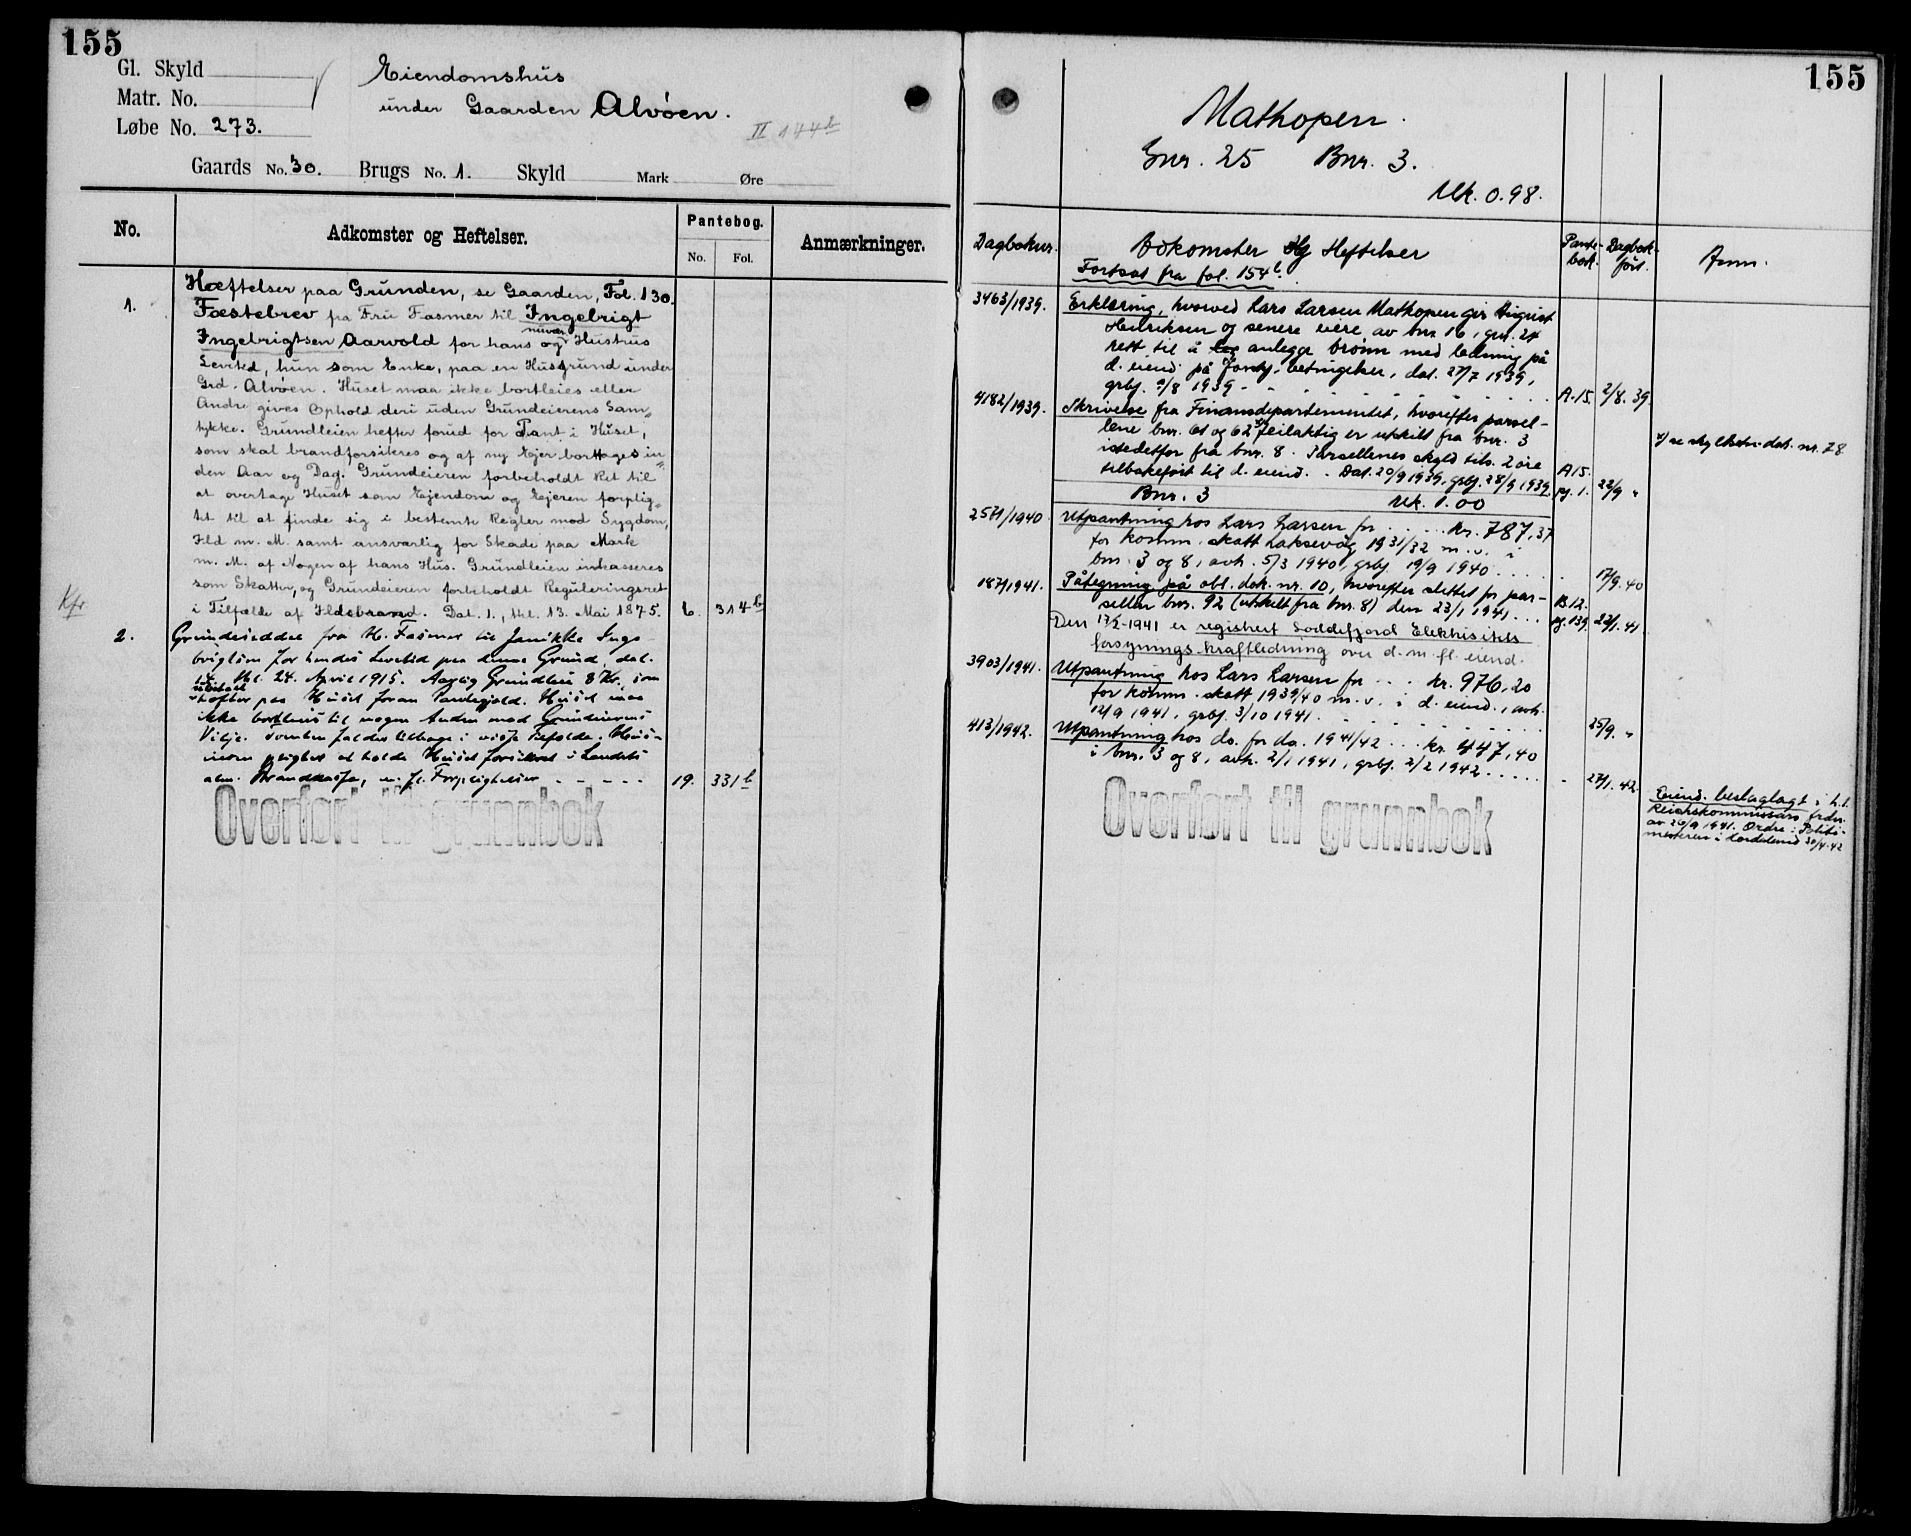 155
Gl. Skyld
Matr. No.
Løbe No. 273.
Eiendomshus
under Gaarden Alvøen.
II 144b
Gaards No. 30. Brugs No. 1. Skyld Mark Øre
No. Adkomster og Heftelser. Pantebog. No. Fol. Anmærkninger.
Hæftelser paa Grunden, se Gaarden, Fol. 130.
1. Fæstebrev fra Fru Fasmer til Ingebrigt
Ingebrigtsen Aarvold for hans og nuvær. Hustrus
Levetid, hun som Enke, paa en Husgrund under
Grd. Alvøen. Huset maa ikke bortleies eller
Andre gives Ophold deri uden Grundeierens Sam-
tykke. Grundleien hefter forud for Pant i Huset,
som skal brandforsikres og af ny Ejer borttages in-
den Aar og Dag. Grundeieren forbeholdt Ret til
at overtage Huset som Ejendom og Ejeren forplig-
tet til at finde sig i bestemte Regler mod Sygdom,
Ild m. M. samt ansvarlig for Skade paa Mark
m. M. af Nogen af hans Hus. Grundleien inkasseres
som Skatter, og Grundeieren forbeholdt Reguleringsret
i Tilfælde af Ildsbrand. Dat. 1., thl. 13. Mai 1875. 6. 314b
2. Grundseddel fra H. Fasmer til Janikke Inge-
brigtsen for hendes Levetid paa denne Grund, dat.
14. thl. 24. April 1915. Aarlig Grundleie 8 Kr., som
hefter paa Huset foran Pantegjæld. Huset maa
ikke bortleies til nogen Anden mod Grundeierens
Vilje. Tomten falder tilbage i visse Tilfælde. Hus-
eieren pligtet at holde Huset forsikret i Landets
alm. Brandkasse, m. fl. Forpligtelser - - - - - 19. 331b
Overført til grunnbok
155
Mathopen.
Gnr. 25 Bnr. 3.
Mk. 0.98.
Dagboknr. Adkomster og Heftelser Pante-bok. Dagbok-ført. Anm.
Fortsat fra fol. 154b.
3463/1939. Erklæring, hvorved Lars Larsen Mathopen gir August
Henriksen og senere eiere av bnr. 16, gnr. 24
rett til å anlegge brønn med ledning på
d. eiend. på betingelser, dat. 27/7 1939,
grbf. 9/8 1939 - - - - A.15. 2/8. 39.
4182/1939. Skrivelse fra Finansdepartementet, hvorefter parsel-
lene bnr. 61 og 62 feilaktig er utskilt fra bnr. 3
istedetfor fra bnr. 8. Parsellenes skyld tils. 2 øre
tilbakeført til d. eiend. - Dat. 20/9 1939, grbf. 28/9 1939. A15. pg. 1. 22/9 "
Bnr. 3 Mk. 1.00
2571/1940. Utpantning hos Lars Larsen for . . . . kr. 787,37
for komm. skatt Laksevåg 1931/32 m. v. i
bnr. 3 og 8, avh. 5/3 1940, grbf. 19/9 1940 . . . . . 17/9. 40
187/1941. Påtegning på obl. dok. nr. 10, hvorefter slettet for par-
sellen bnr. 92 (utskilt fra bnr. 8) den 23/1 1941 . . . B.12. pg. 139. 22/1. 41.
Den 12/2-1941 er registrert Soddefjord Elektrisitets
forsynings kraftledning over d. m. fl. eiend.
3903/1941. Utpantning hos Lars Larsen for . . . kr. 976,20
for komm. skatt 1939/40 m. v. i d. eiend., avh.
12/9 1941, grbf. 3/10 1941. . . . . . . 25/9. "
413/1942. Utpantning hos do. for do. 1941/42 . . . kr. 447,40
i bnr. 3 og 8, avh. 2/1 1941, grbf. 2/2 1942 . . . . . 27/1. 42.
Eiend. beslaglagt i h.t.
Reichskommissars frdn.
av 26/9 1941. Ordre: Politi-
mesteren i Hordaland 30/4-42
Overført til grunnbok